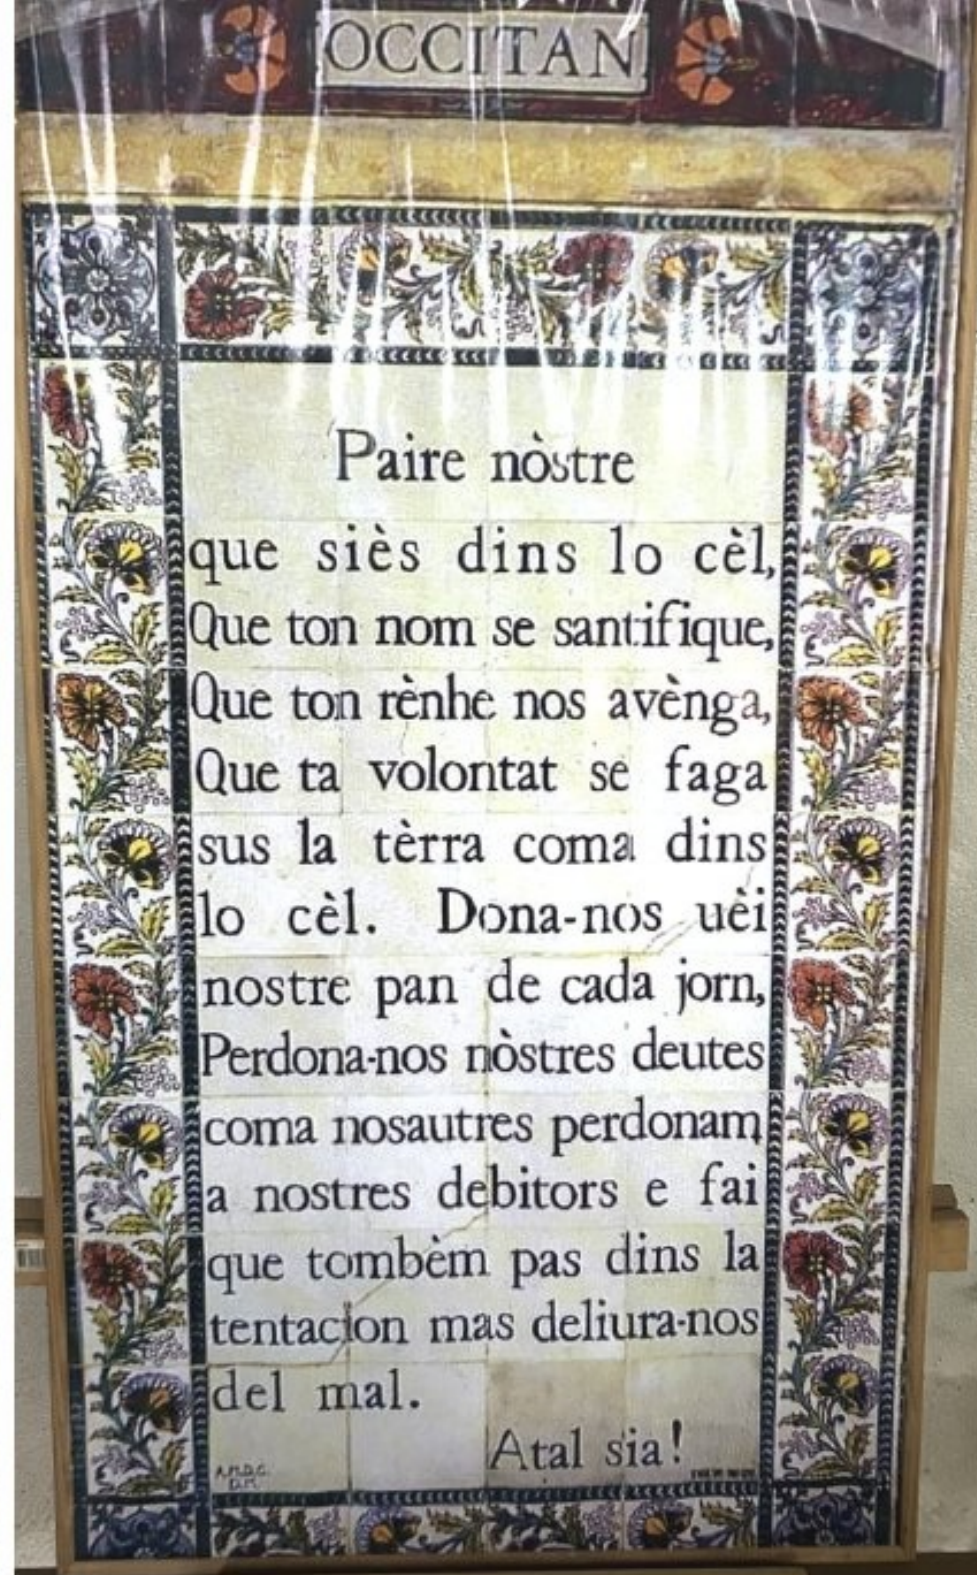 OCCITAN
Paire nòstre
que siès dins lo cèl,
Que ton nom se santifique,
Que ton rènhe nos avènga,
Que ta volontat se faga
sus la tèrra coma dins
lo cèl. Dona-nos uèi
nostre pan de cada jorn,
Perdona-nos nòstres deutes
coma nosautres perdonam
a nostres debitors e fai
que tombèm pas dins la
tentacion mas deliura-nos
del mal.
Atal sia!